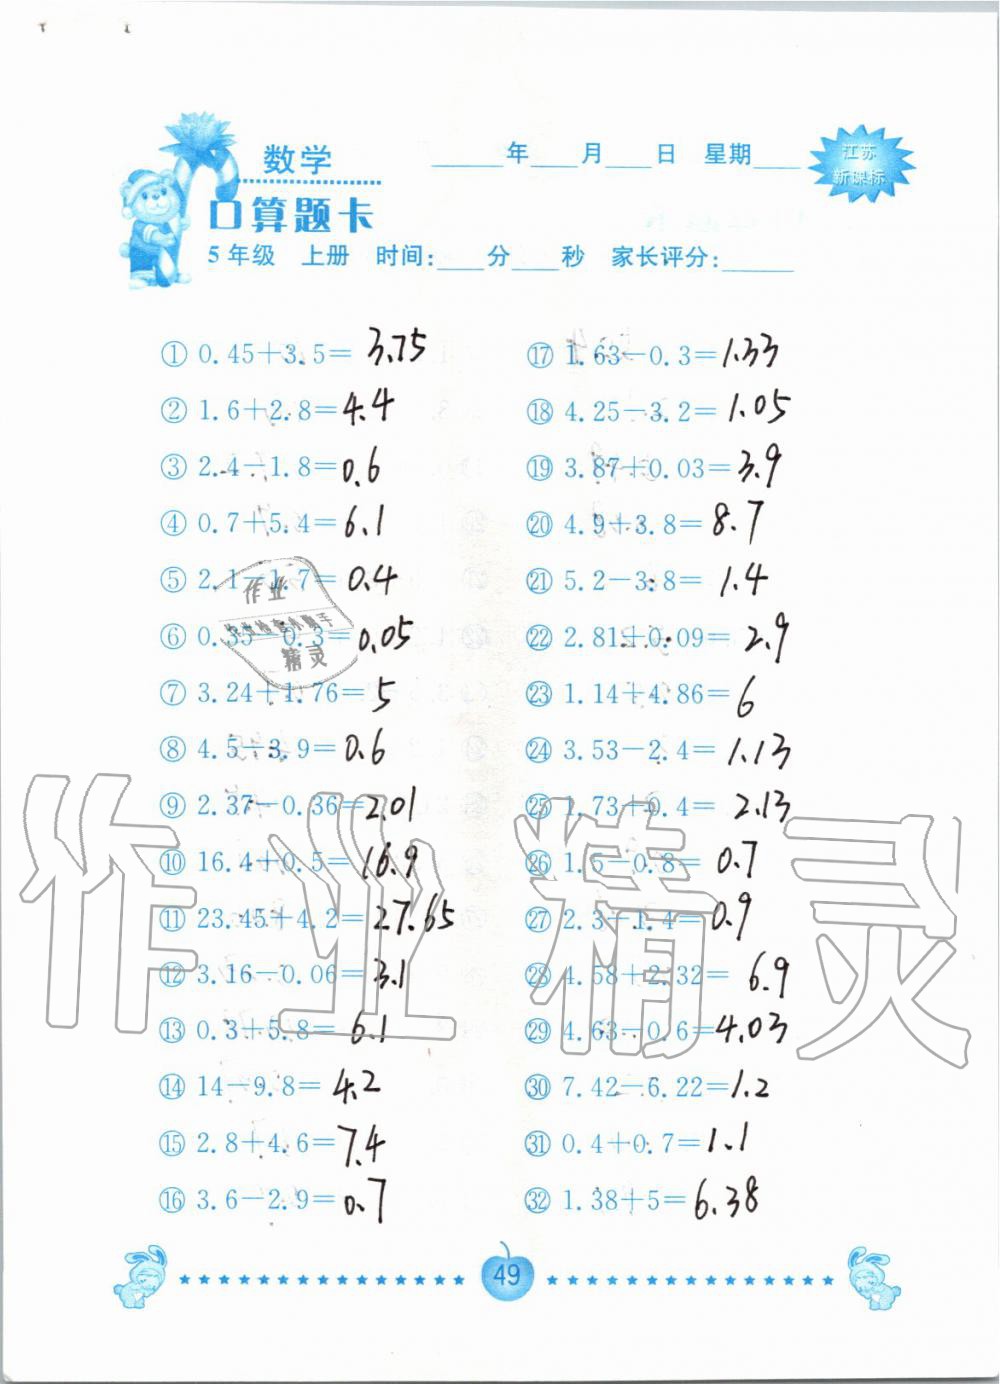 数学
口算题卡
____年____月____日 星期____
江苏
新课标
5年级 上册 时间:____分____秒 家长评分:______
① 0.45+3.5= 3.75
② 1.6+2.8= 4.4
③ 2.4-1.8= 0.6
④ 0.7+5.4= 6.1
⑤ 2.1-1.7= 0.4
⑥ 0.35-0.3= 0.05
⑦ 3.24+1.76= 5
⑧ 4.5-3.9= 0.6
⑨ 2.37-0.36= 2.01
⑩ 16.4+0.5= 16.9
⑪ 23.45+4.2= 27.65
⑫ 3.16-0.06= 3.1
⑬ 0.3+5.8= 6.1
⑭ 14-9.8= 4.2
⑮ 2.8+4.6= 7.4
⑯ 3.6-2.9= 0.7
⑰ 1.63-0.3= 1.33
⑱ 4.25-3.2= 1.05
⑲ 3.87+0.03= 3.9
⑳ 4.9+3.8= 8.7
㉑ 5.2-3.8= 1.4
㉒ 2.81+0.09= 2.9
㉓ 1.14+4.86= 6
㉔ 3.53-2.4= 1.13
㉕ 1.73+0.4= 2.13
㉖ 1.5-0.8= 0.7
㉗ 2.3-1.4= 0.9
㉘ 4.58+2.32= 6.9
㉙ 4.63-0.6= 4.03
㉚ 7.42-6.22= 1.2
㉛ 0.4+0.7= 1.1
㉜ 1.38+5= 6.38
作业
精灵
作业精灵
49